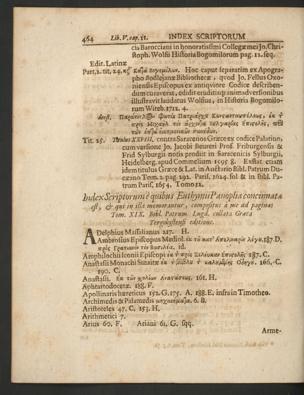 464 Lib. V. cap. 11. INDEX SCRIPTORUM
cis Barocciani in honoratissimi Collegæ mei Jo. Chri-
stoph. Wolfii Historia Bogomilorum pag. 12. seq.
Edit. Latinæ
Part. 2. tit. 24. Hoc caput separatim ex Apogra-
pho Bodlejanæ Bibliothecæ: quod Jo. Fellus Oxo-
niensis Episcopus ex antiquiore Codice describen-
dum curaverat, edidit eruditisque animadversionibus
illustravit laudatus Wolfius, in Historia Bogomilo-
rum Witeb. 1712. 4.
Tit. 25. Titulus XXVIII, contra Saracenos Græce ex codice Palatino,
cum versione Jo. Jacobi Beureri Prof. Friburgensis &
Frid Sylburgii notis prodiit in Saracenicis Sylburgii,
Heidelberg. apud Commelium 1595 8. Exstat etiam
idem titulus Græce & Lat. in Auctario Bibl. Patrum Du-
cæano Tom. 2. pag. 292. Paris. 1624. fol & in Bibl. Pa-
trum Paris, 1654. Tomo 12.
Index Scriptorum è quibus Euthymii Panoplia concinnata
est, & qui in illa memorantur, compositus à me ad paginas
Tom. XIX. Bibl. Patrum Lugd. collata Græca
editione.
A Delphius Massilianus 227. H.
Ambrosius Episcopus Mediol. 187. D.
12.
Amphilochii Iconii Episcopi 187. C.
Anastasii Monachi Sinaitæ 166. C.
190. C.
Anastasii. 161. H.
Aphtartodocetæ. 188. F.
Apollinaris hæreticus 152. G. 175. A. 188. E. infra in Timotheo.
Archimedis & Palamedis 6. 8.
Aristoteles 47. C. 153. H.
Arithmetici 7.
Arius 60. F. Ariani 61. G. sqq.
Arme-